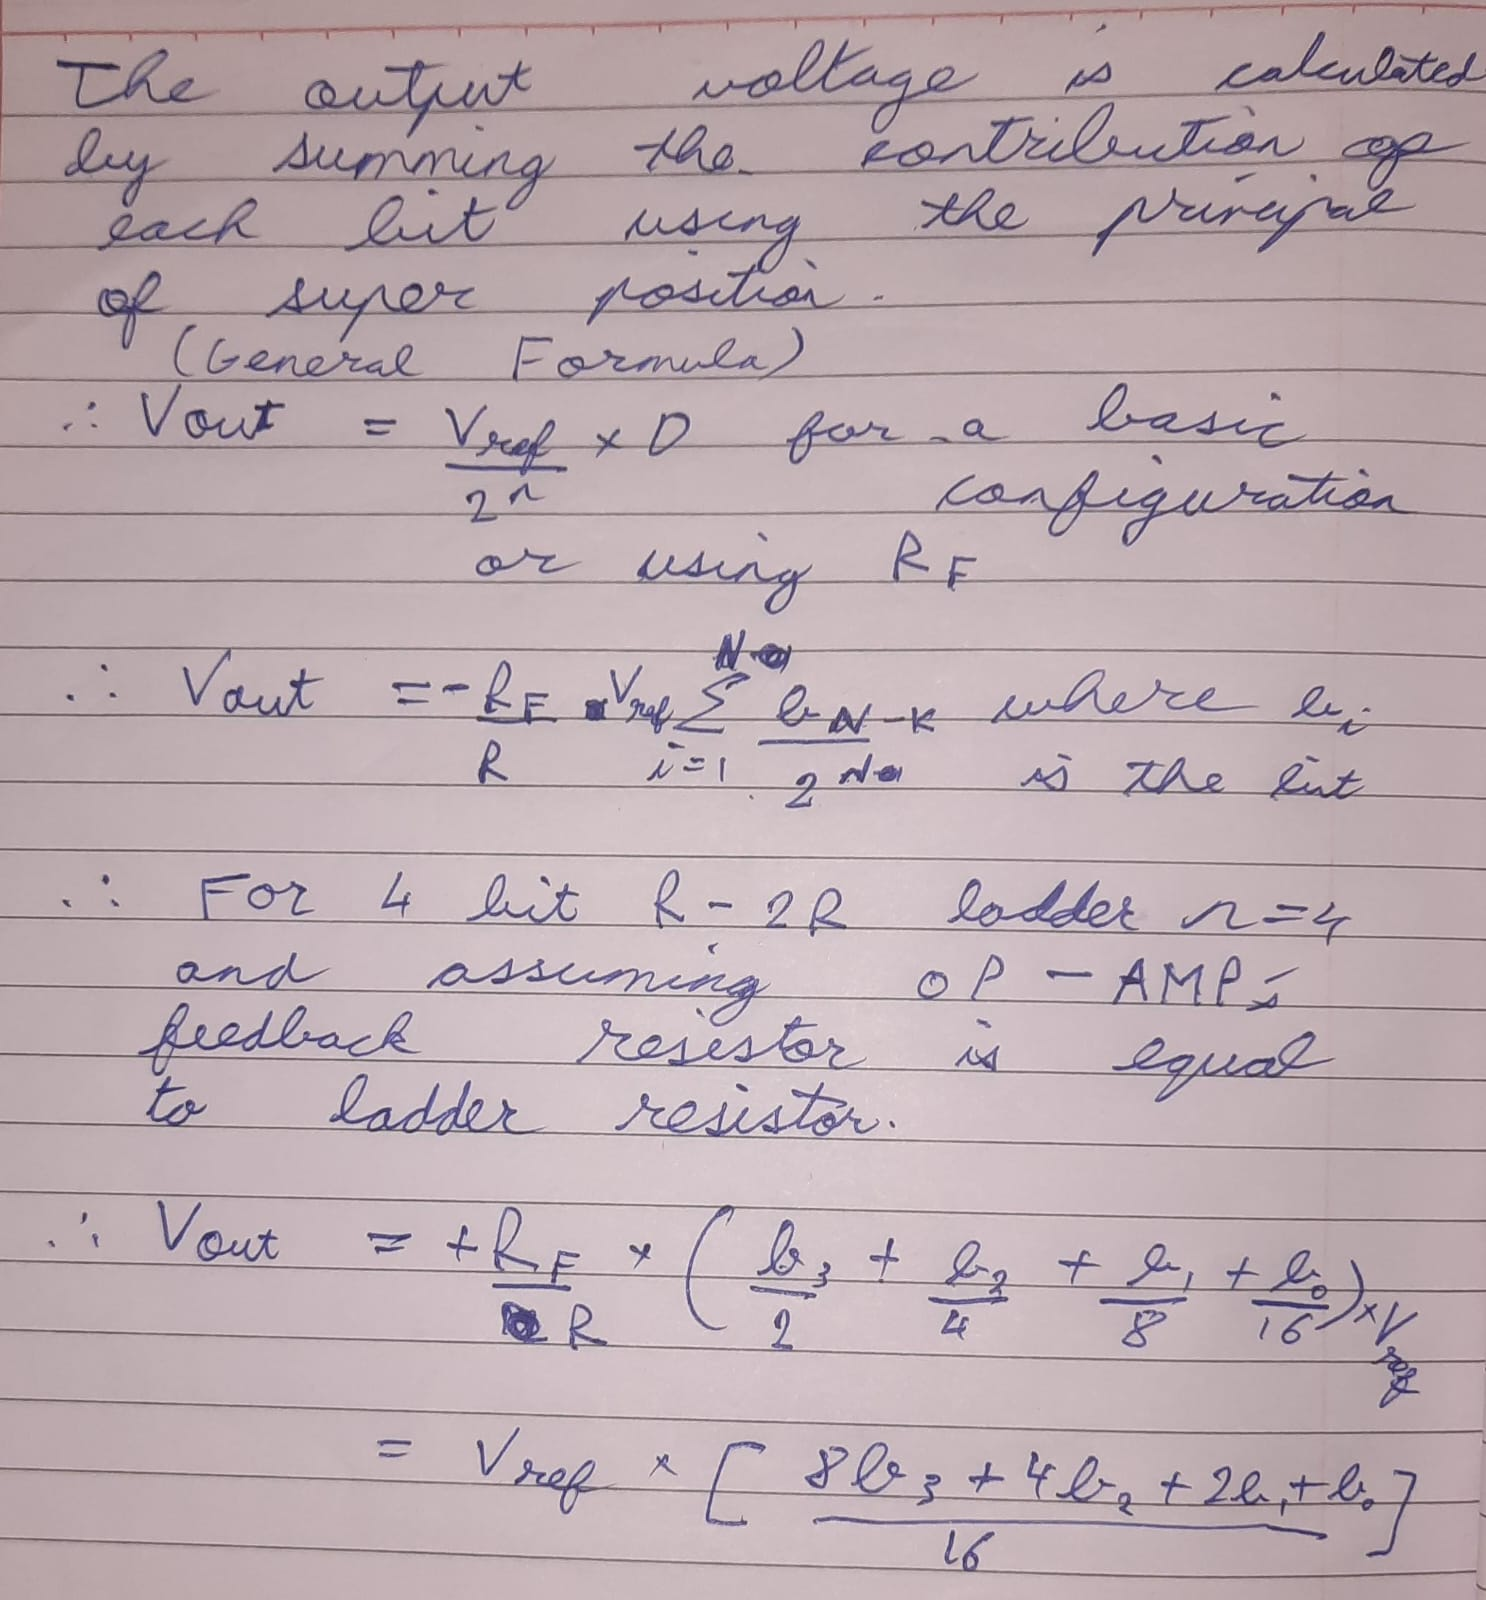 The output voltage is calculated
by summing the contribution of
each bit using the principal
of super position.
(General Formula)
∴ Vout = Vref/2^n × D for a basic
configuration
or using R_F
∴ Vout = -R_F/R Vref Σ_{i=1}^{N} b_{N-K}/2^N where b_i
is the bit
∴ For 4 bit R-2R ladder n=4
and assuming OP-AMP's
feedback resistor is equal
to ladder resistor.
∴ Vout = +R_F/R × (b_3/2 + b_2/4 + b_1/8 + b_0/16) × Vref
= Vref × [8b_3 + 4b_2 + 2b_1 + b_0 / 16]